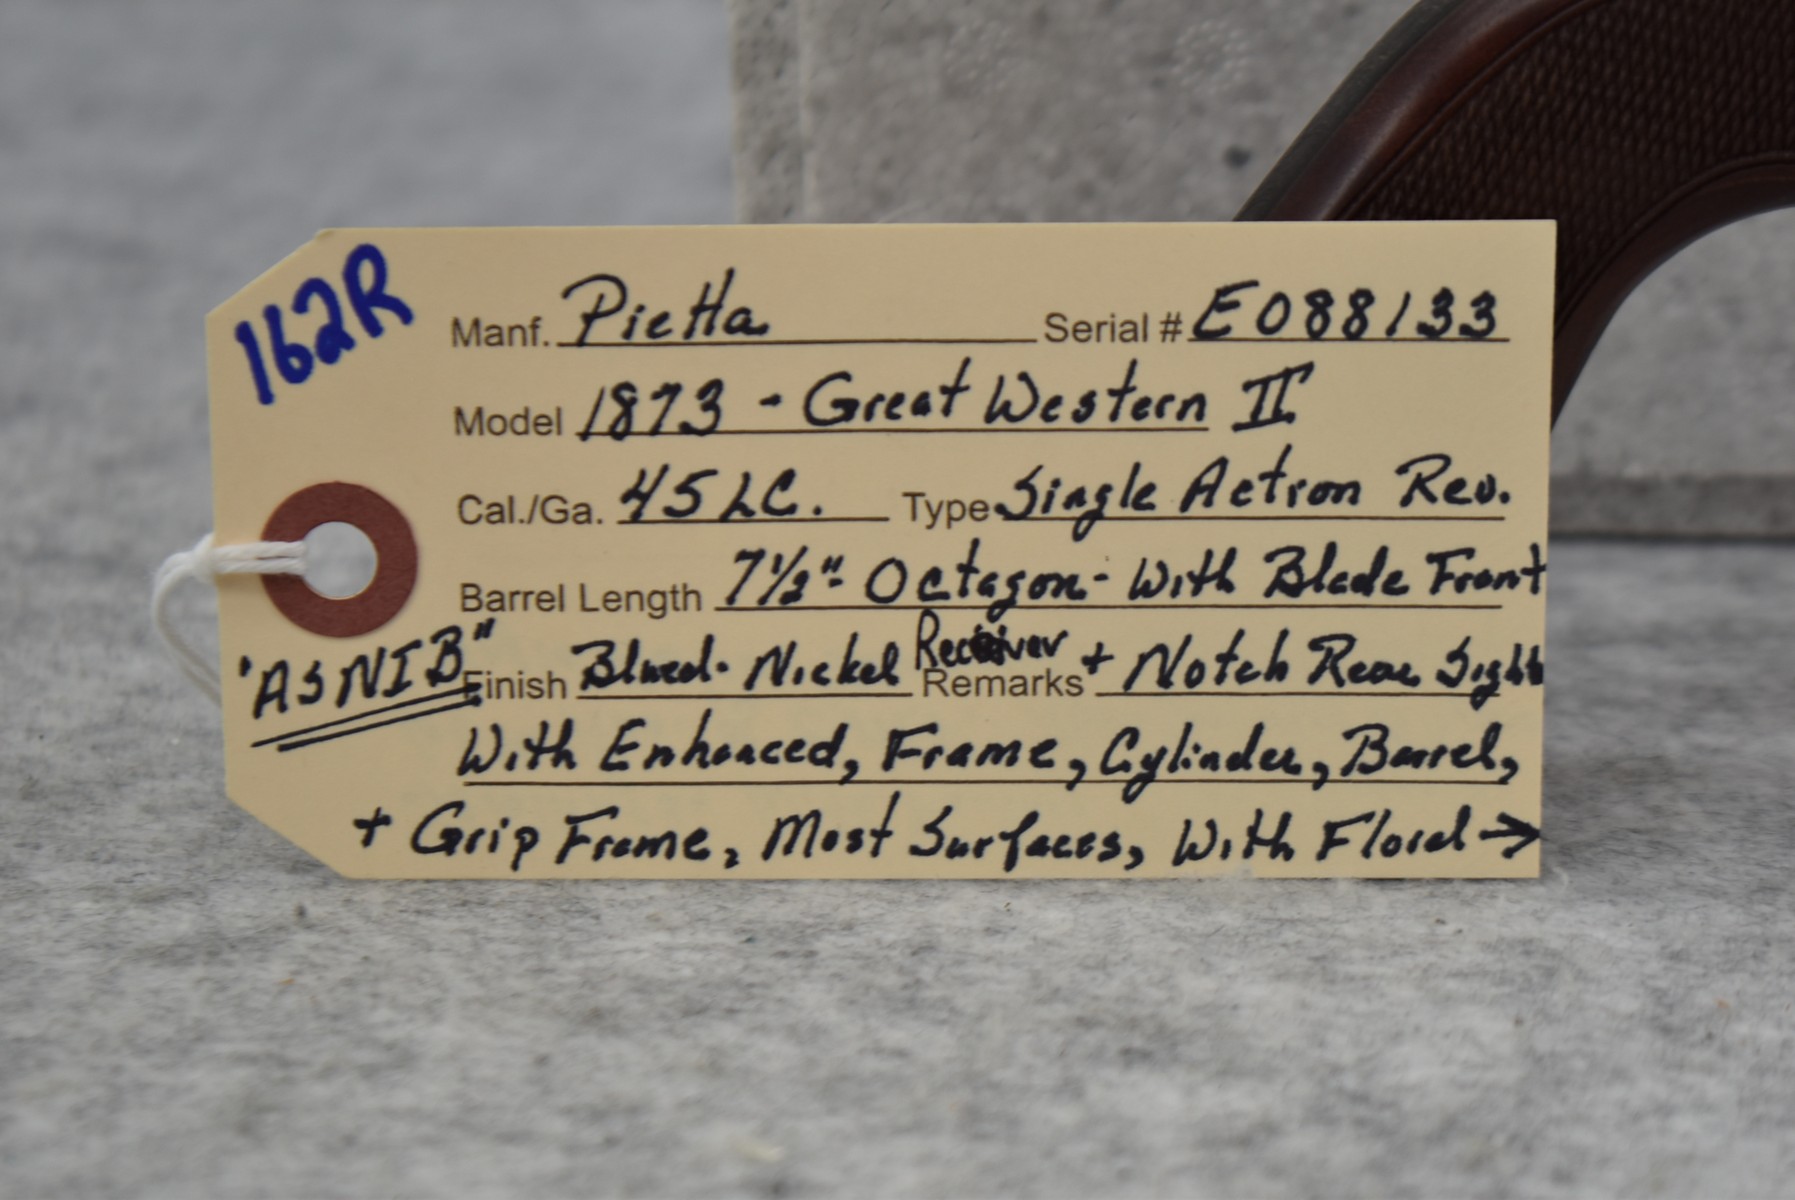 162R
Manf. Pietta Serial # E088133
Model 1873 - Great Western II
Cal./Ga. 45 LC. Type Single Action Rev.
Barrel Length 7½"- Octagon- With Blade Front
"ASNIB" Finish Blued- Nickel Receiver Remarks + Notch Rear Sight
With Enhanced, Frame, Cylinder, Barrel,
+ Grip Frame, Most Surfaces, With Floral →